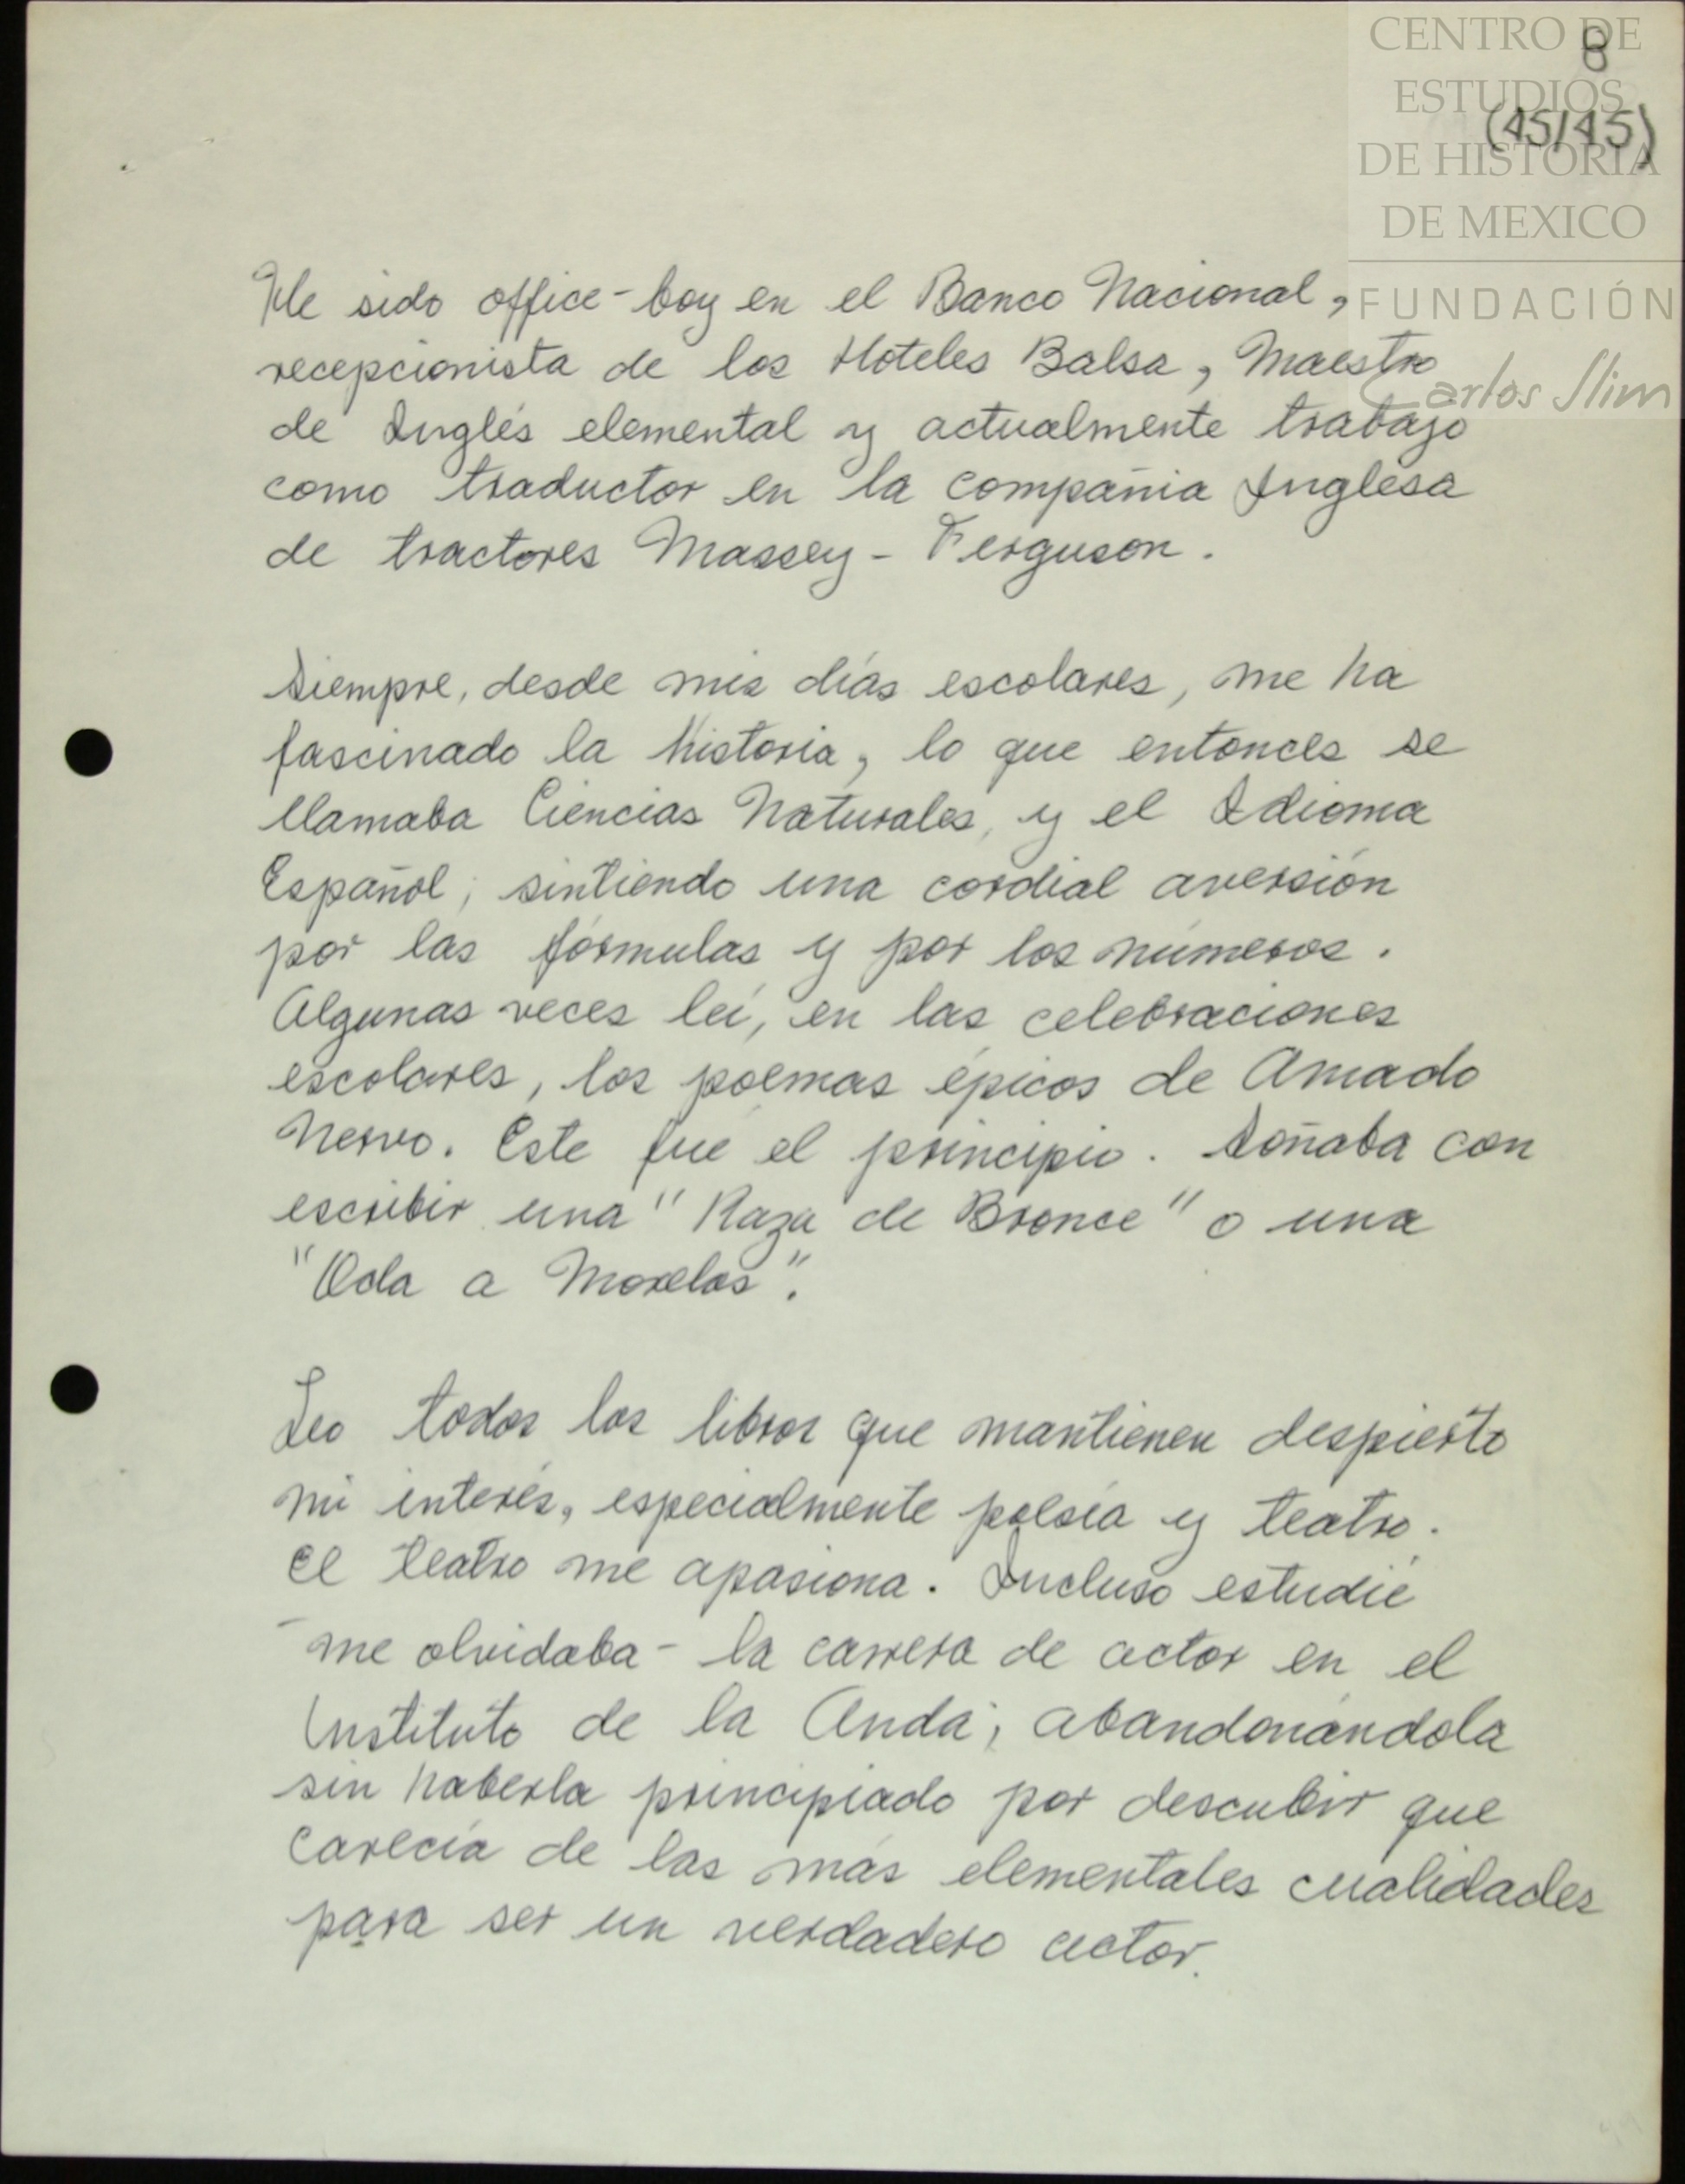 CENTRO DE
8
ESTUDIOS
(45/45)
DE HISTORIA
DE MEXICO
FUNDACIÓN
Carlos Slim
He sido office-boy en el Banco Nacional,
recepcionista de los Hoteles Balsa, Maestro
de Inglés elemental y actualmente trabajo
como traductor en la compañia Inglesa
de tractores Massey-Ferguson.
Siempre, desde mis días escolares, me ha
fascinado la historia, lo que entonces se
llamaba Ciencias Naturales, y el Idioma
Español; sintiendo una cordial aversión
por las fórmulas y por los números.
Algunas veces leí, en las celebraciones
escolares, los poemas épicos de Amado
Nervo. Este fué el principio. Soñaba con
escribir una "Raza de Bronce" o una
"Oda a Morelos".
Leo todos los libros que mantienen despierto
mi interés, especialmente poesía y teatro.
El teatro me apasiona. Incluso estudié
-me olvidaba- la carrera de actor en el
Instituto de la Anda; abandonándola
sin haberla principiado por descubrir que
carecía de las más elementales cualidades
para ser un verdadero actor.